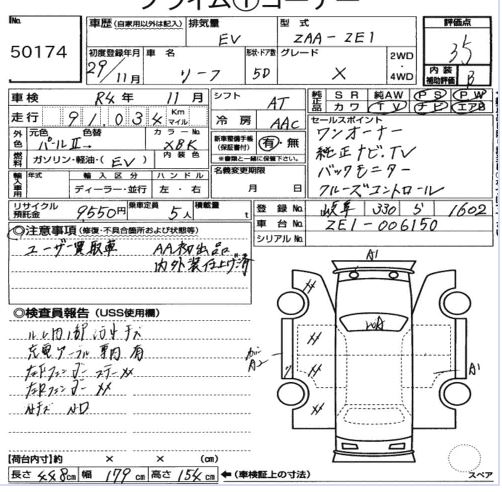 プライム①コーナー
No. 50174
車歴 (自家用以外は記入) 排気量 EV 型式 ZAA-ZE1 評価点 3.5
初度登録年月 29/11月 車名 リーフ 形状・ドア数 5D グレード X 2WD 4WD 内装補助評価 B
車検 R4年 11月 シフト AT 純正品 SR 純AW PS PW カワ TV ナビ エアB
走行 91,034 Km マイル 冷房 AAC
外色 元色 パールⅡ→ 色替 カラーNo. XBK 内装色
燃料 ガソリン・軽油・(EV)
新車整備手帳(保証書付) 有・無 ※書類と一緒に保管下さい。
セールスポイント
ワンオーナー
純正ナビ.TV
バックモニター
クルーズコントロール
輸入車用 年式 輸入区分 ディーラー・並行 ハンドル 左・右
名義変更期限 月 日
リサイクル預託金 9550円 乗車定員 5人 積載量 t
登録No. 岐阜 330 1602
車台No. ZE1-006150
シリアルNo.
◎注意事項 (修復・不具合箇所および状態等)
ユーザー買取車 AA初出品
内外装仕上げ済
◎検査員報告 (USS使用欄)
充電ケーブル 車内有
A1
A2
A1
【荷台内寸】約 × × (cm)
長さ 448cm 幅 179cm 高さ 154cm ←(車検証上の寸法)
スペア